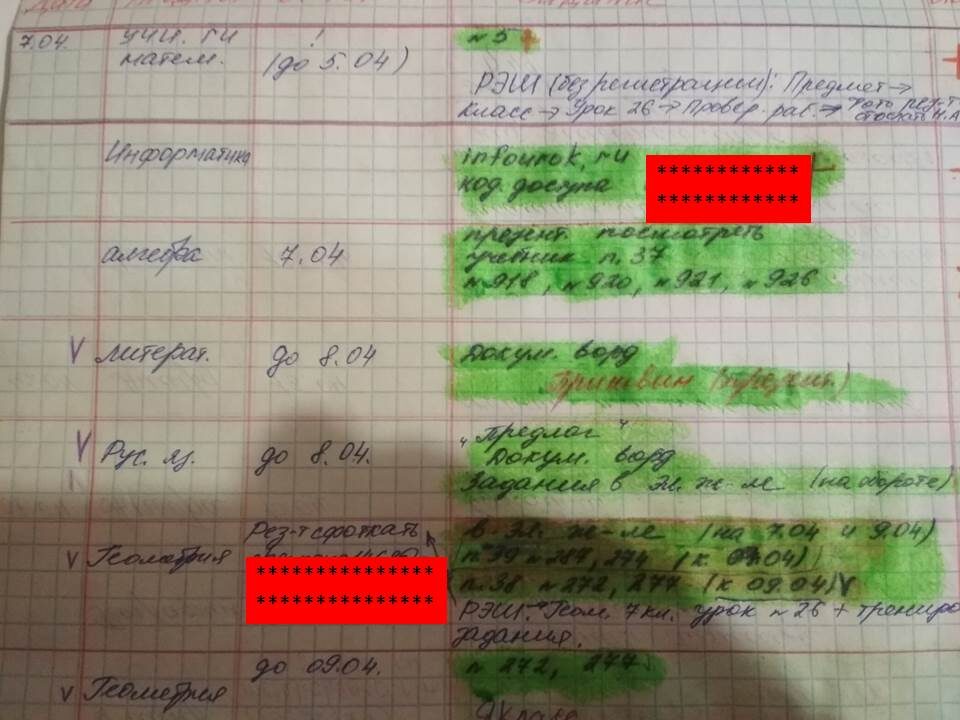 Дата
7.04.
учи. ru ! № 5
матем. (до 5.04)
РЭШ (без регистрации): Предмет →
класс → Урок 26 → Провер. раб. → Фото рез-т
отослать Н.А
Информатика infourok.ru
код доступа ************
************
през­ент. посмотреть
алгебра 7.04 учебник п. 37
№918, №920, №921, №926
V Литерат. до 8.04 Докум. ворд
Пришвин
V Рус. я. до 8.04. "Предлог"
Докум. ворд
Задания в эл. ж-ле (на обороте)
Рез-т сфоткать в эл. ж-ле (на 7.04 и 9.04)
V Геометрия п. 39 № 287, 274 (к 07.04)
*************** п. 38 № 272, 277 (к 09.04) V
*************** РЭШ. Геом. 7 кл. урок № 26 + трениро
задания.
до 09.04. № 272, 277
V Геометрия